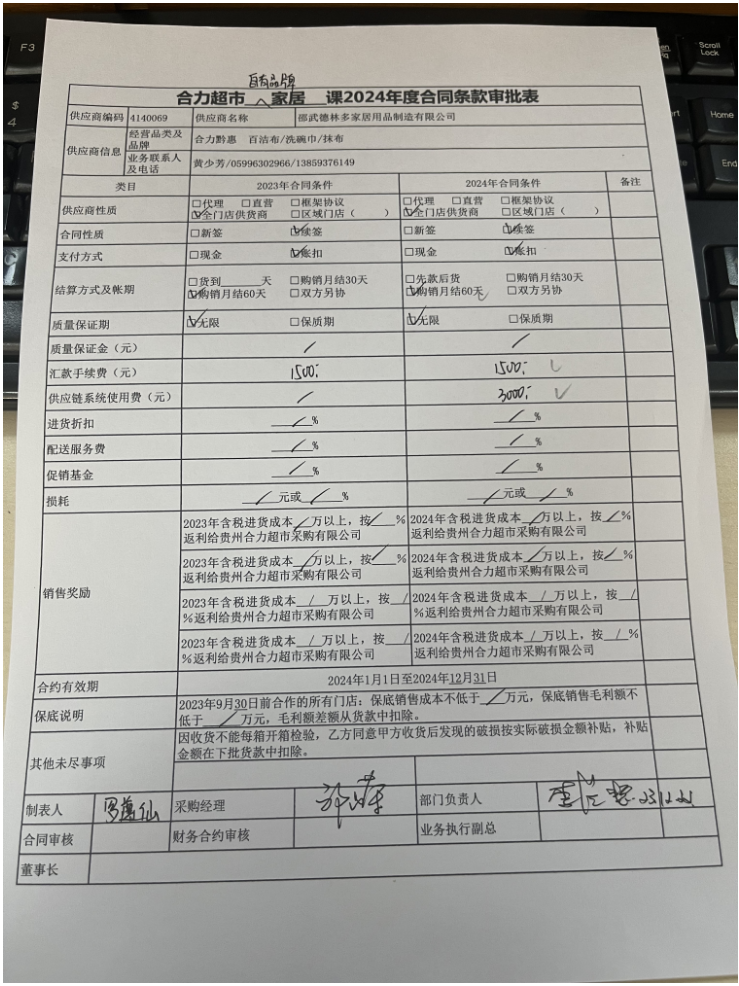 自有品牌
合力超市 家居 课2024年度合同条款审批表
供应商编码 4140069 供应商名称 邵武德林多家居用品制造有限公司
供应商信息 经营品类及品牌 合力黔惠 百洁布/洗碗巾/抹布
业务联系人及电话 黄少芳/05996302966/13859376149
类目 2023年合同条件 2024年合同条件 备注
供应商性质 □代理 □直营 □框架协议 □代理 □直营 □框架协议
☑全门店供货商 □区域门店（ ） ☑全门店供货商 □区域门店（ ）
合同性质 □新签 ☑续签 □新签 ☑续签
支付方式 □现金 ☑账扣 □现金 ☑账扣
结算方式及帐期 □货到____天 □购销月结30天 □先款后货 □购销月结30天
☑购销月结60天 □双方另协 ☑购销月结60天 □双方另协
质量保证期 ☑无限 □保质期 ☑无限 □保质期
质量保证金（元） / /
汇款手续费（元） 1500:- 1500:-
供应链系统使用费（元） / 3000:-
进货折扣 /% /%
配送服务费 /% /%
促销基金 /% /%
损耗 /元或/% /元或/%
销售奖励
2023年含税进货成本/万以上，按/% 2024年含税进货成本/万以上，按/%
返利给贵州合力超市采购有限公司 返利给贵州合力超市采购有限公司
2023年含税进货成本/万以上，按/% 2024年含税进货成本/万以上，按/%
返利给贵州合力超市采购有限公司 返利给贵州合力超市采购有限公司
2023年含税进货成本/万以上，按/ 2024年含税进货成本/万以上，按/
%返利给贵州合力超市采购有限公司 %返利给贵州合力超市采购有限公司
2023年含税进货成本/万以上，按/ 2024年含税进货成本/万以上，按/%
%返利给贵州合力超市采购有限公司 返利给贵州合力超市采购有限公司
合约有效期 2024年1月1日至2024年12月31日
保底说明 2023年9月30日前合作的所有门店：保底销售成本不低于/万元，保底销售毛利额不
低于/万元，毛利额差额从货款中扣除。
其他未尽事项 因收货不能每箱开箱检验，乙方同意甲方收货后发现的破损按实际破损金额补贴，补贴
金额在下批货款中扣除。
制表人 采购经理 部门负责人 23.12.25
合同审核 财务合约审核 业务执行副总
董事长
F3
$
4
Scroll
Lock
Home
End